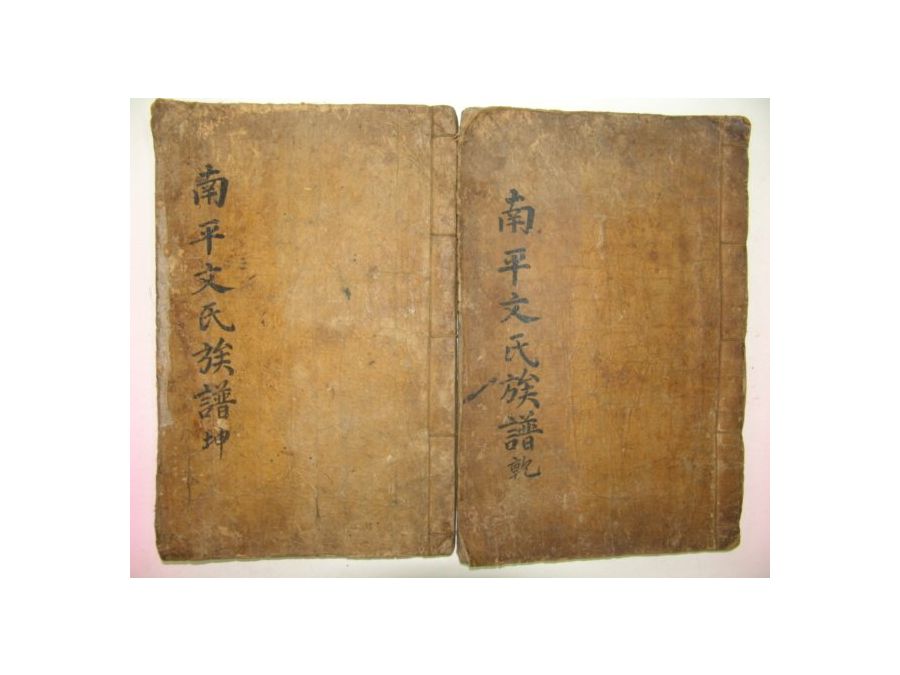 南平文氏族譜乾
南平文氏族譜坤